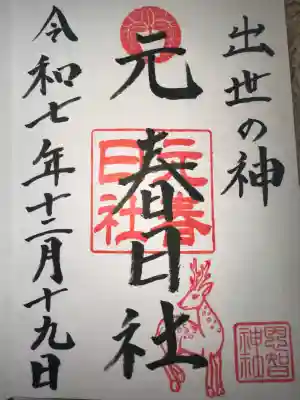 出世の神
元春日社
元春日社
恩智神社
令和七年十二月十九日